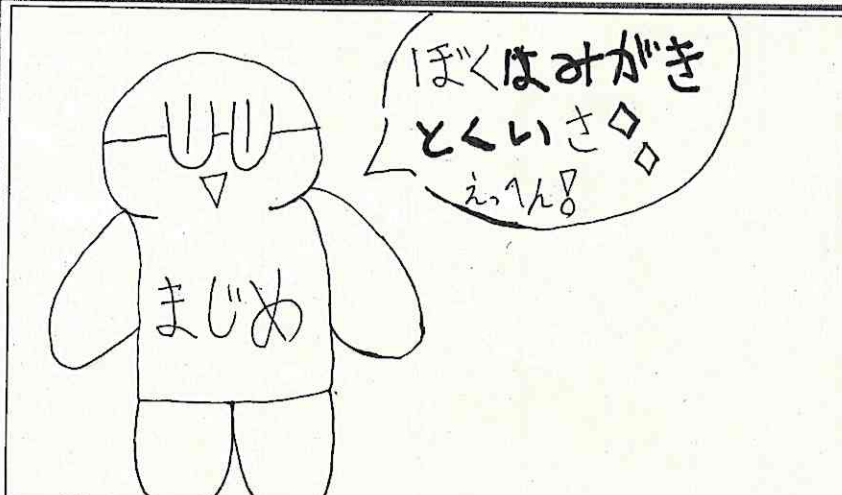 ぼくはみがき
とくいさ
えっへん!
まじめ